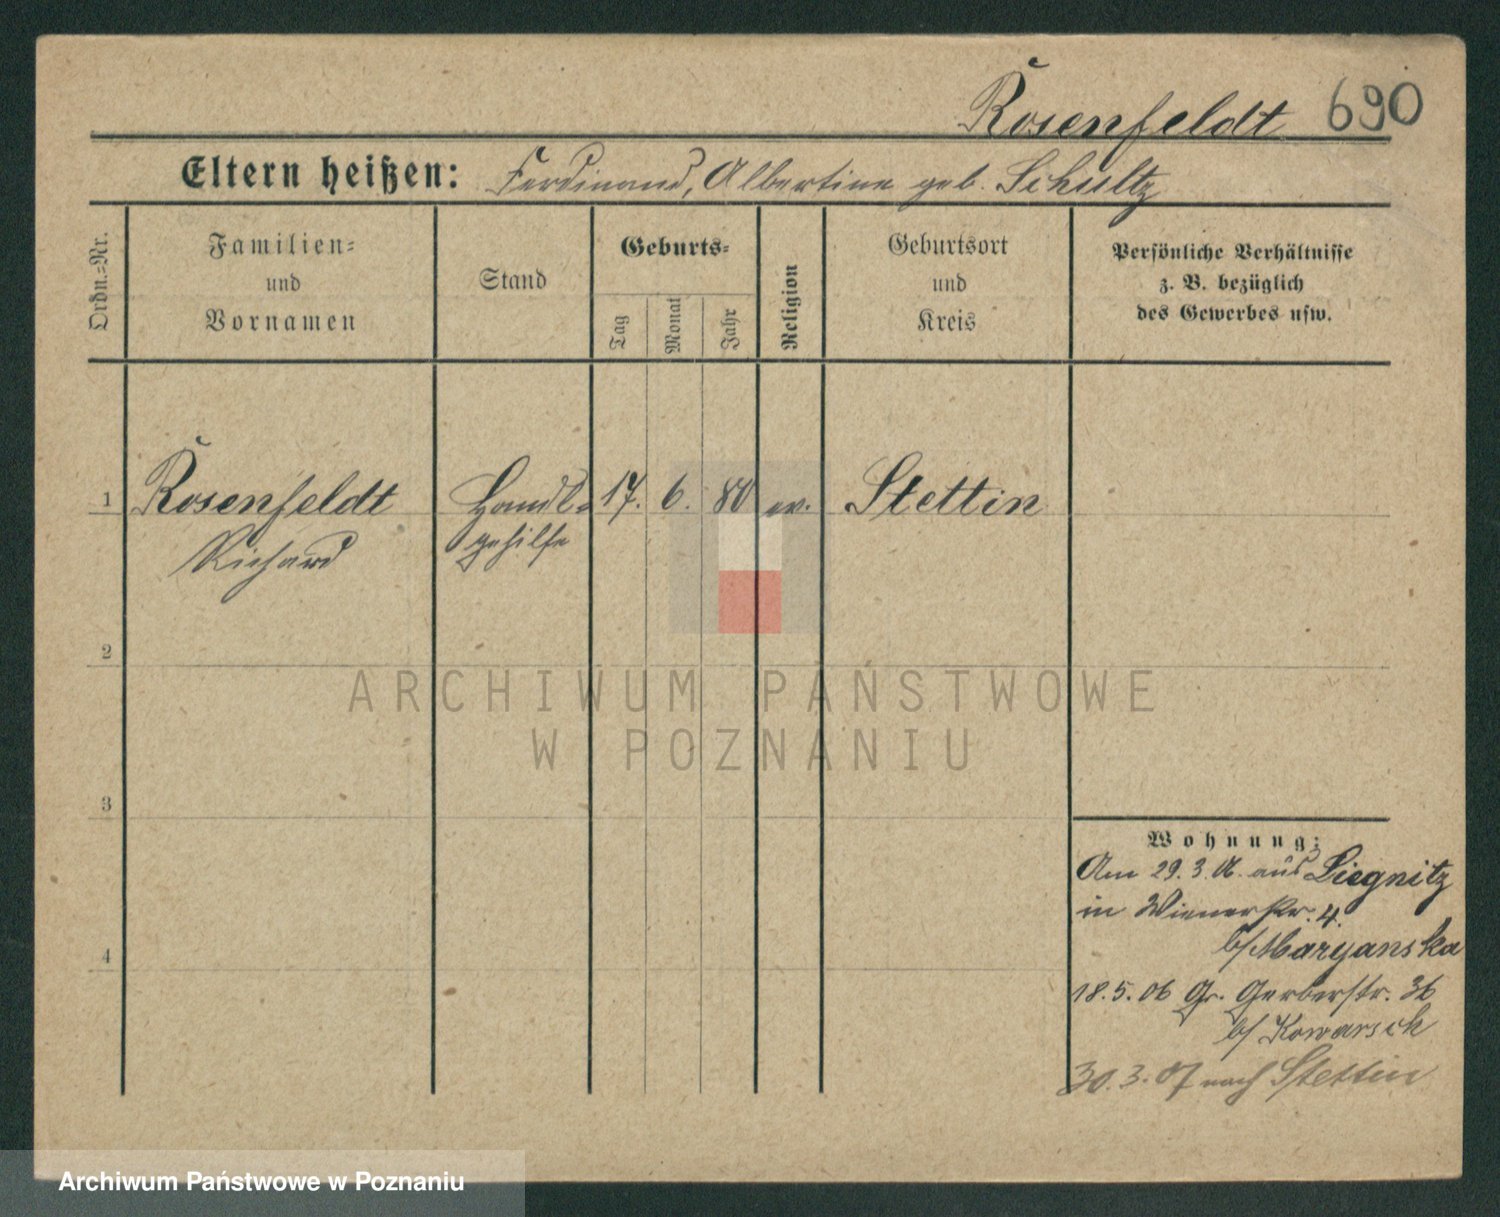 Rosenfeldt 690
Eltern heißen: Ferdinand, Albertine geb. Schultz
Ordn.=Nr.
Familien=
und
Vornamen
Stand
Geburts=
Tag
Monat
Jahr
Religion
Geburtsort
und
Kreis
Persönliche Verhältnisse
z. B. bezüglich
des Gewerbes usw.
1 Rosenfeldt Handl= 17. 6. 80 ev. Stettin
Richard gehilfe
2
ARCHIWUM PAŃSTWOWE
W POZNANIU
3
Wohnung:
Am 29.3. aus Liegnitz
in Wienerstr. 4.
b/Maryanska
4
18.5.06 Gr. Gerberstr. 36
b/ Kowarsch
30.3.07 nach Stettin
Archiwum Państwowe w Poznaniu